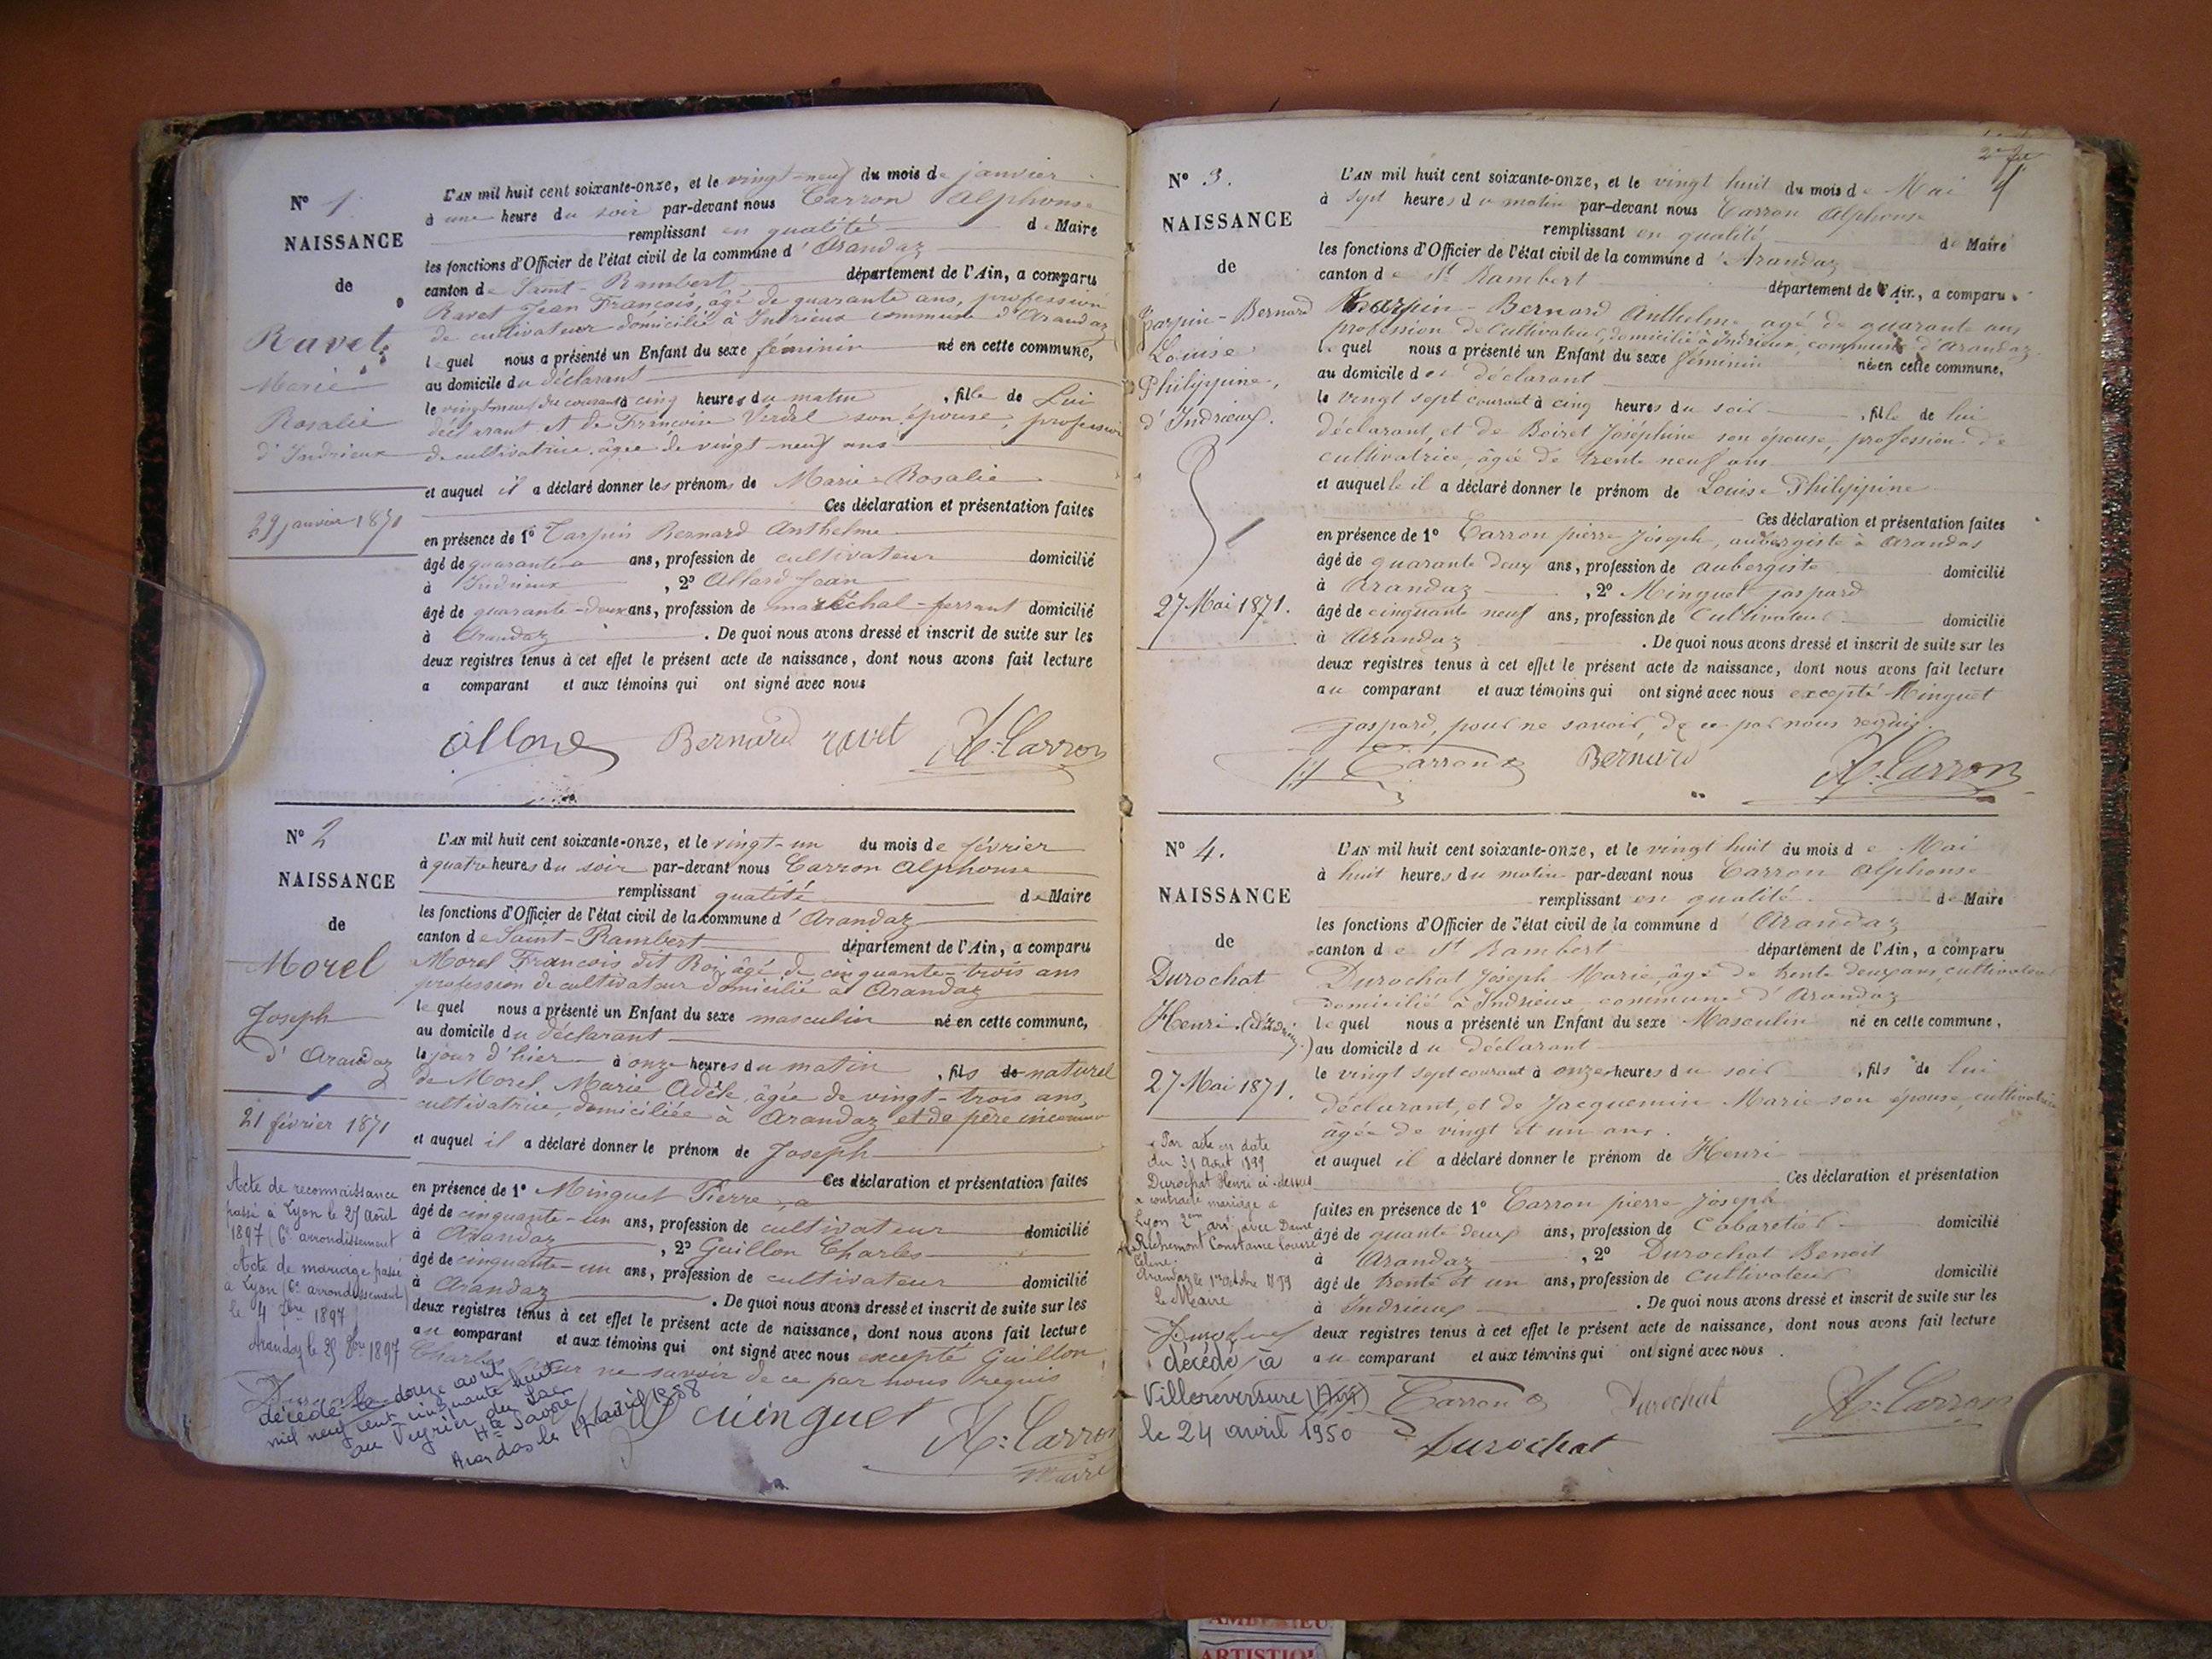 N° 1
NAISSANCE
de
Ravet
Marie
Rosalie
d'Indrieux
29 janvier 1871
L'AN mil huit cent soixante-onze, et le vingt-neuf du mois de janvier
à une heure du soir par-devant nous Carron Alphonse
remplissant en qualité de Maire
les fonctions d'Officier de l'état civil de la commune d'Arandaz
canton de Saint-Rambert département de l'Ain, a comparu
Ravet Jean François, âgé de quarante ans, profession
de cultivateur domicilié à Indrieux commune d'Arandaz
lequel nous a présenté un Enfant du sexe féminin né en cette commune,
au domicile du déclarant
le vingt neuf du courant à cinq heures du matin, fille de Lui
déclarant et de Françoise Verdel son épouse, profession
de cultivatrice âgée de vingt-neuf ans
et auquel il a déclaré donner les prénoms de Marie-Rosalie
Ces déclaration et présentation faites
en présence de 1° Tarpin Bernard Anthelme
âgé de quarante ans, profession de cultivateur domicilié
à Indrieux, 2° Allard Jean
âgé de quarante-deux ans, profession de maréchal-ferrant domicilié
à Arandaz. De quoi nous avons dressé et inscrit de suite sur les
deux registres tenus à cet effet le présent acte de naissance, dont nous avons fait lecture
a comparant et aux témoins qui ont signé avec nous
Bernard ravet A. Carron
N° 2
NAISSANCE
de
Morel
Joseph
d'Arandaz
21 février 1871
Acte de reconnaissance
passé à Lyon le 27 août
1897 (6e arrondissement
Acte de mariage passé
à Lyon (6e arrondissement)
le 4 7bre 1897
Arandaz le 25 8bre 1897
décédé le douze avril
mil neuf cent cinquante huit
au Veyrier du Lac
Hte Savoie
Arandas le 17 avril 1958
L'AN mil huit cent soixante-onze, et le vingt-un du mois de février
à quatre heures du soir par-devant nous Carron Alphonse
remplissant qualité de Maire
les fonctions d'Officier de l'état civil de la commune d'Arandaz
canton de Saint-Rambert département de l'Ain, a comparu
Morel François dit Roi, âgé de cinquante-trois ans
profession de cultivateur domicilié à Arandaz
lequel nous a présenté un Enfant du sexe masculin né en cette commune,
au domicile du déclarant
le jour d'hier à onze heures du matin, fils de naturel
de Morel Marie Adèle, âgée de vingt-trois ans,
cultivatrice, domiciliée à Arandaz et de père inconnu
et auquel il a déclaré donner le prénom de Joseph
Ces déclaration et présentation faites
en présence de 1° Minguet Pierre
âgé de cinquante-un ans, profession de cultivateur domicilié
à Arandaz, 2° Guillon Charles
âgé de cinquante-un ans, profession de cultivateur domicilié
à Arandaz. De quoi nous avons dressé et inscrit de suite sur les
deux registres tenus à cet effet le présent acte de naissance, dont nous avons fait lecture
au comparant et aux témoins qui ont signé avec nous excepté Guillon
Charles pour ne savoir de ce par nous requis
minguet A. Carron
Maire
N° 3.
NAISSANCE
de
Tarpin-Bernard
Louise
Philippine,
d'Indrieux.
27 Mai 1871.
L'AN mil huit cent soixante-onze, et le vingt huit du mois de Mai
à sept heures du matin par-devant nous Carron Alphonse
remplissant en qualité de Maire
les fonctions d'Officier de l'état civil de la commune d'Arandaz
canton de St Rambert département de l'Ain, a comparu
Tarpin-Bernard Anthelme agé de quarante ans
profession de Cultivateur, domicilié à Indrieux, commune d'Arandaz
lequel nous a présenté un Enfant du sexe féminin né en cette commune,
au domicile du déclarant
le vingt sept courant à cinq heures du soir, fille de lui
déclarant, et de Boiret Joséphine son épouse, profession de
cultivatrice, âgée de trente neuf ans
et auquelle il a déclaré donner le prénom de Louise Philippine
Ces déclaration et présentation faites
en présence de 1° Carron pierre Joseph, aubergiste à Arandas
âgé de quarante deux ans, profession de aubergiste domicilié
à Arandaz, 2° Minguet gaspard
âgé de cinquante neuf ans, profession de Cultivateur domicilié
à Arandaz. De quoi nous avons dressé et inscrit de suite sur les
deux registres tenus à cet effet le présent acte de naissance, dont nous avons fait lecture
au comparant et aux témoins qui ont signé avec nous excepté Minguet
gaspard, pour ne savoir, de ce par nous requis.
Carron Bernard A. Carron
N° 4.
NAISSANCE
de
Durochat
Henri (d'Indrieux)
27 Mai 1871.
Par acte en date
du 31 Août 1899
Durochat Henri ci-dessus
a contracté mariage à
Lyon 2me arrt avec Dame
Richemont Constance Louise
Céline.
Arandaz le 1er octobre 1899
Le Maire
décédé à
Villereversure (Ain)
le 24 avril 1950
L'AN mil huit cent soixante-onze, et le vingt huit du mois de Mai
à huit heures du matin par-devant nous Carron Alphonse
remplissant en qualité de Maire
les fonctions d'Officier de l'état civil de la commune d'Arandaz
canton de St Rambert département de l'Ain, a comparu
Durochat Joseph Marie, âgé de trente deux ans, cultivateur
domicilié à Indrieux commune d'Arandaz
lequel nous a présenté un Enfant du sexe Masculin né en cette commune,
au domicile du déclarant
le vingt sept courant à onze heures du soir, fils de lui
déclarant, et de Jacquemin Marie son épouse, cultivatrice
âgée de vingt et un ans.
et auquel il a déclaré donner le prénom de Henri
Ces déclaration et présentation
faites en présence de 1° Carron pierre Joseph
âgé de quante deux ans, profession de Cabaretier domicilié
à Arandaz, 2° Durochat Benoit
âgé de trente et un ans, profession de Cultivateur domicilié
à Indrieux. De quoi nous avons dressé et inscrit de suite sur les
deux registres tenus à cet effet le présent acte de naissance, dont nous avons fait lecture
au comparant et aux témoins qui ont signé avec nous.
Carron Durochat A. Carron
Durochat